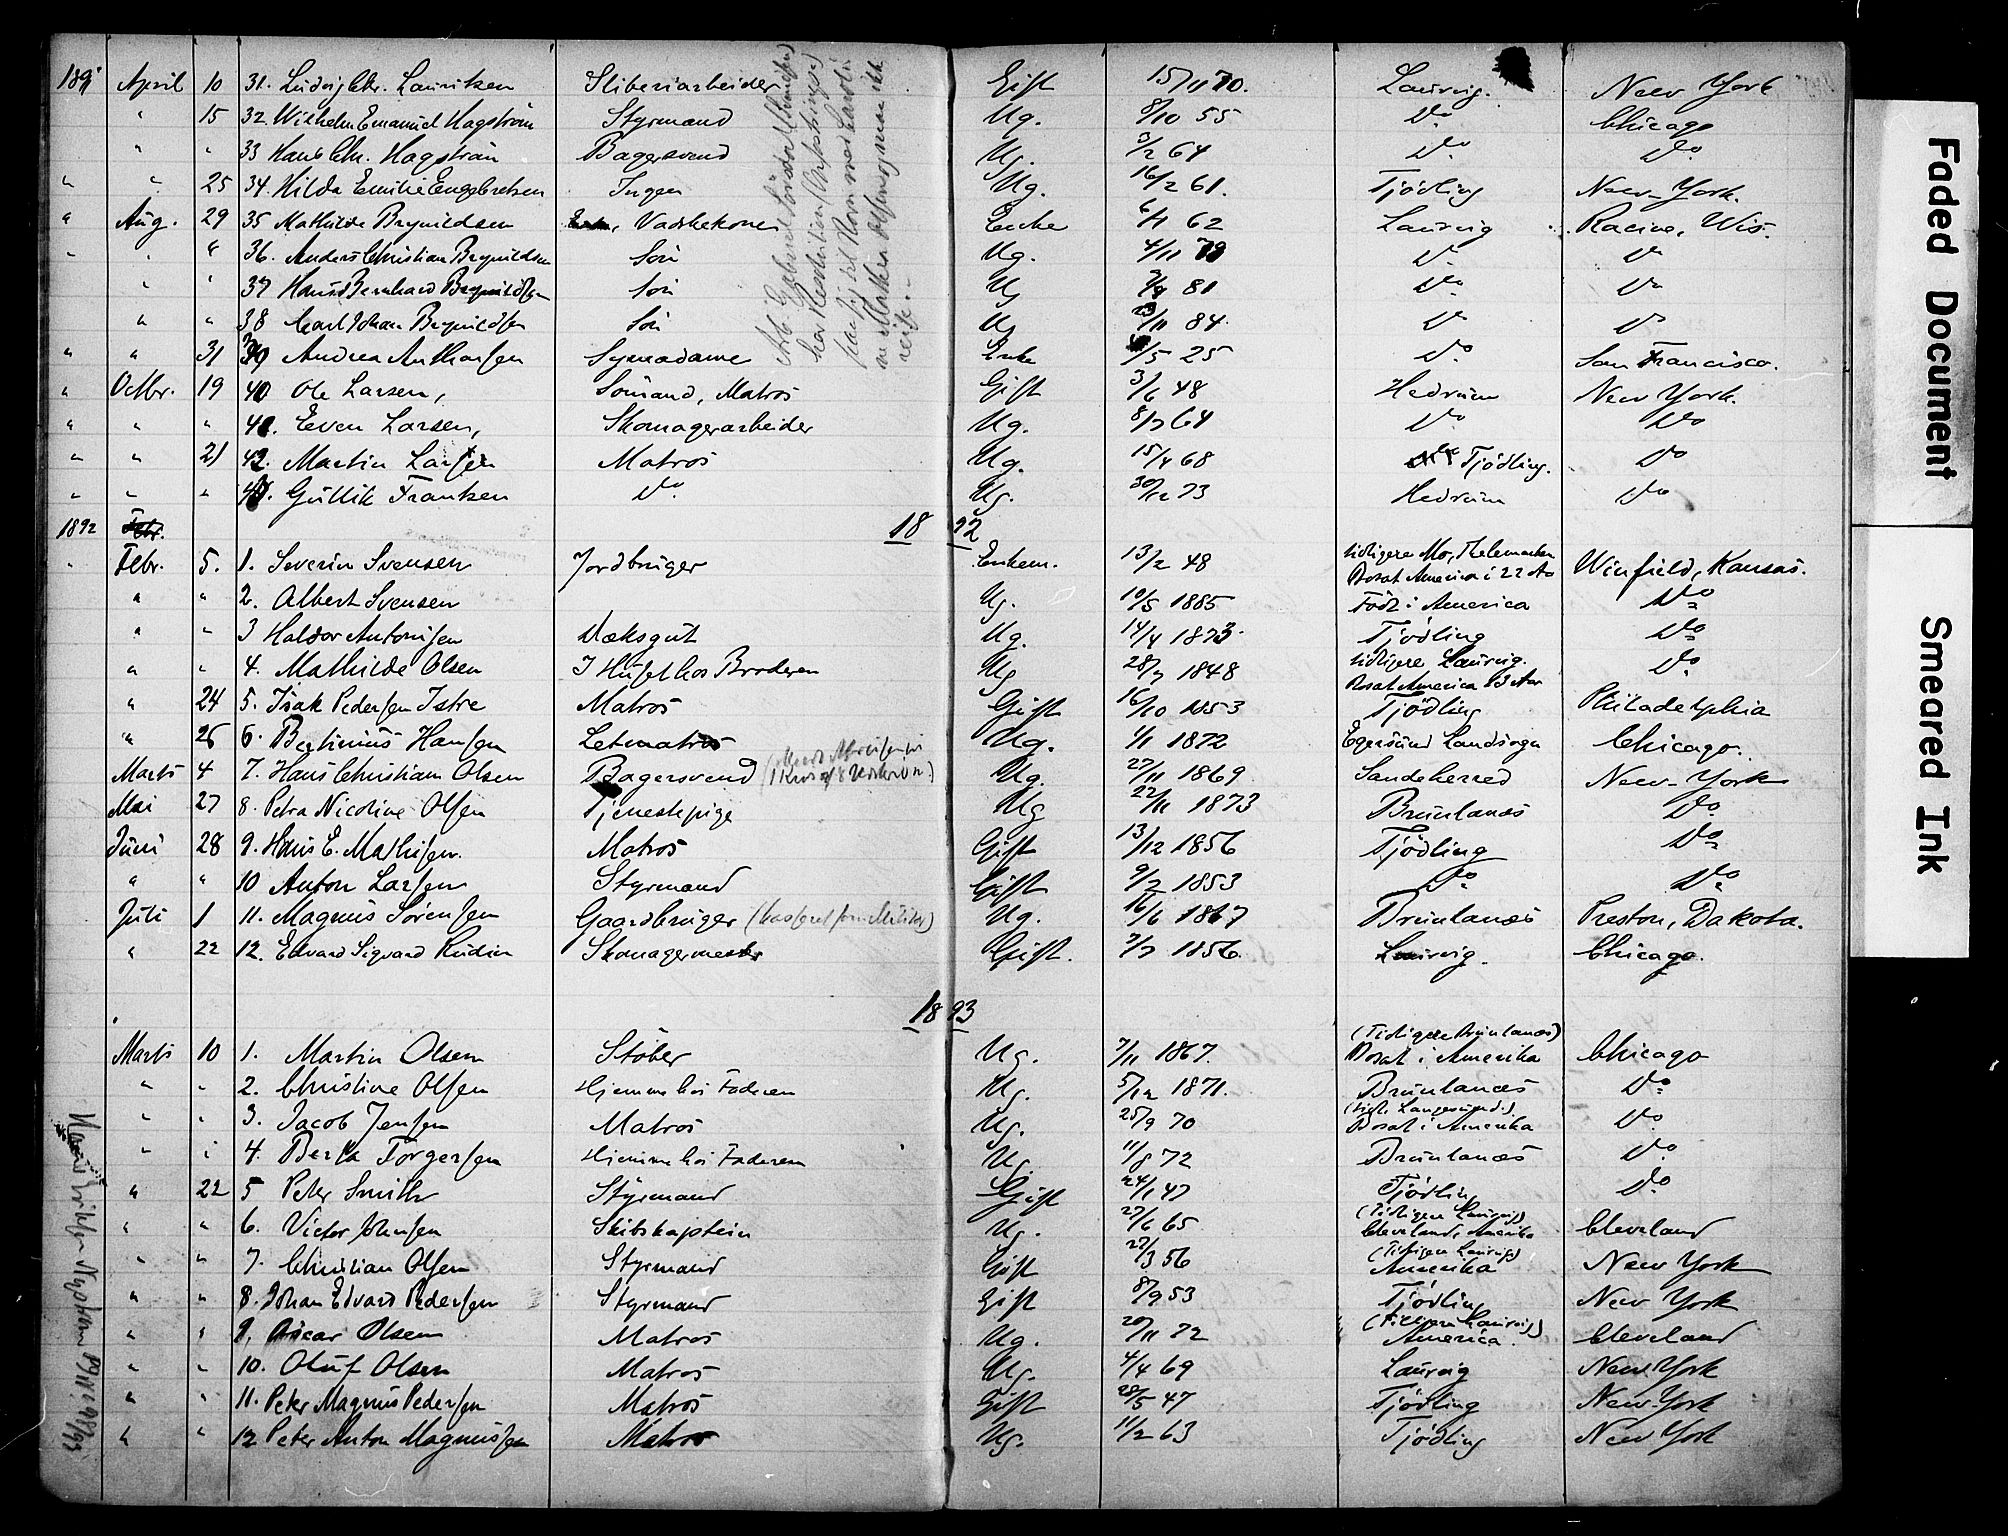 1891 April 10 31. Ludvig Chr. Lauritzen Sliberiarbeider Gift 15/11 70. Laurvig. New York
" 15 32. Wilhelm Emanuel Hagström Styrmand Ug. 8/10 55 Do Chicago
" " 33 Hans Chr. Hagström Bagersvend Ug. 3/2 64 Do Do
" " 25 34. Hilda Emilie Engebretsen Ingen Ug. 16/2 61. Tjödling New-York.
" Aug. 29 35 Mathilde Brynildsen Vaskekone Enke 62 Laurvig Racine, Wis.
" " " 36. Anders Christian Brynildsen Sön Ug. 4/11 79 Do Do
" " 37 Hans Bernhard Brynildsen Sön Ug 81 Do Do
" " 38 Carl Johan Brynildsen Sön Ug 23/11 84. Do Do
" " 31 39 Andrea Anthonsen Symadame Enke /5 25 Do San Francisco.
" Octbr. 19 40 Ole Larsen, Sömand, Matros Gift 3/6 48 Hedrum New York.
" " " 41. Even Larsen, Skomagerarbeider Ug. 8/7 64 Do Do
" " 21 42. Martin Larsen Matros Ug. 15/4 68 Tjödling. Do
" " " 43. Gullik Frantzen Do Ug. 30/12 73 Hedrum Do
1892 Febr. 1892
" Febr. 5. 1. Severin Svensen Jordbruger Enkem. 13/2 48 tidligere Mo, Thelemarken Bosat America i 22 Aar Winfield, Kansas.
" " 2. Albert Svensen Ug. 10/5 1885 Född i America Do
" " 3 Haldor Antonisen Væksgut Ug. 14/4 1873. Tjödling Do
" " 4. Mathilde Olsen I Huset hos Broderen Ug 28/7 1848 tidligere Laurvig. Bosat America 13 Aar Do
" 24 5. Isak Pedersen Istre Matros Gift 16/10 1853 Tjödling Philadelphia
" 26 6. Bertinius Hansen Letmatros Ug. 1/1 1872 Egersund Landsogn Chicago.
Marts 4 7. Hans Christian Olsen Bagersvend Ug. 27/11 1869. Sandeherred New-York
Mai 27 8. Petra Nicoline Olsen Tjenestepige Ug 22/11 1873 Brunlanæs Do
Juni 28 9. Hans E. Mathisen. Matros Gift 13/12 1856 Tjödling Do
" " 10 Anton Larsen Styrmand Gift 9/2 1853 Do Do
Juli 1 11. Magnus Sørensen Gaardbruger Ug. 16/6 1867 Brunlanæs Preston, Dakota.
" 22 12. Edvard Sigvard Rudin Skomagermester Gift. 7/7 1856. Laurvig. Chicago.
1893
Marts 10 1. Martin Olsen Støber Ug. 7/11 1867. (Tidligere Brunlanæs) Bosat i Amerika Chicago
" " 2. Christine Olsen Hjemme hos Faderen Ug. 5/12 1871. Brunlanæs Do
" " 3. Jacob Jensen Matros Ug. 25/9 70 (tidl. Langesund.) Bosat i Amerika Do
" " 4. Berta Torgersen Hjemme hos Faderen Ug. 11/8 72 Brunlanæs Do
" 22 5 Peter Smith Styrmand Gift 24/1 47 Tjödling Do
" " 6. Victor Skibskaptein Ug. 27/6 65 (Tidligere Laurvig) Cleveland, Amerika Cleveland
" " 7. Christian Olsen Styrmand Gift 27/3 56 (Tidligere Laurvig) Amerika New York
" " 8. Johan Edvard Pedersen Styrmand Gift 8/9 53 Tjödling New York
" " 9. Oscar Olsen Matros Ug. 20/11 72 (Tidligere Laurvig) America. Cleveland
" " 10. Oluf Olsen Matros Ug. 4/4 69 Laurvig New York
" " 11. Peter Magnus Pedersen Matros Gift 28/5 47 Tjödling New York
" " 12 Peter Anton Magnussen Matros Ug. 11/2 63 Tjödling New York
Faded Document
Smeared Ink